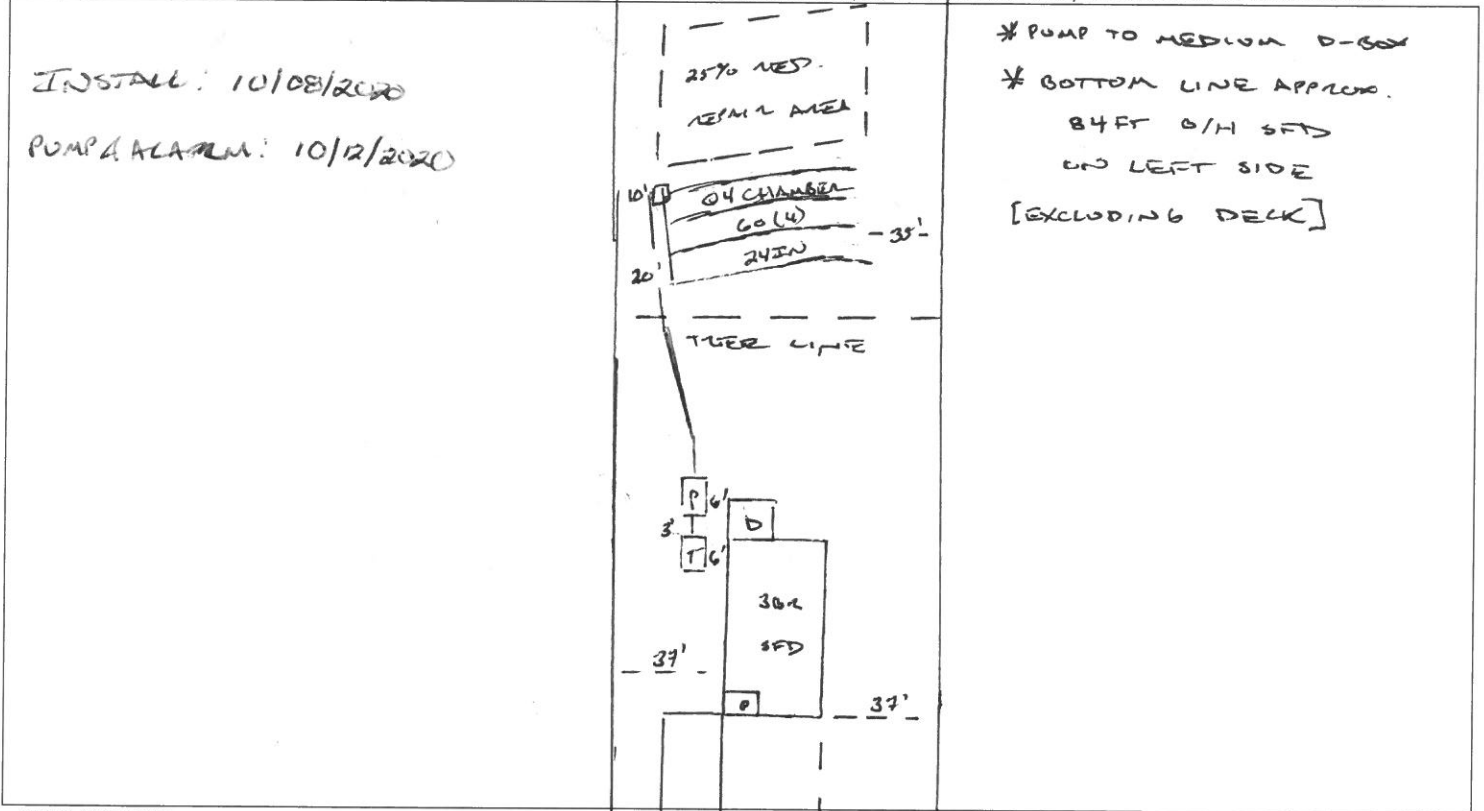 INSTALL: 10/08/2020
PUMP & ALARM: 10/12/2020
25% RED.
REPAIR AREA
10'
Q4 CHAMBER
60 (4)
- 35' -
24IN
20'
TREE LINE
P 6'
3'
D
T 6'
3BR
SFD
37'
P
37'
* PUMP TO MEDIUM D-BOX
* BOTTOM LINE APPROX.
84FT B/H SFD
ON LEFT SIDE
[EXCLUDING DECK]